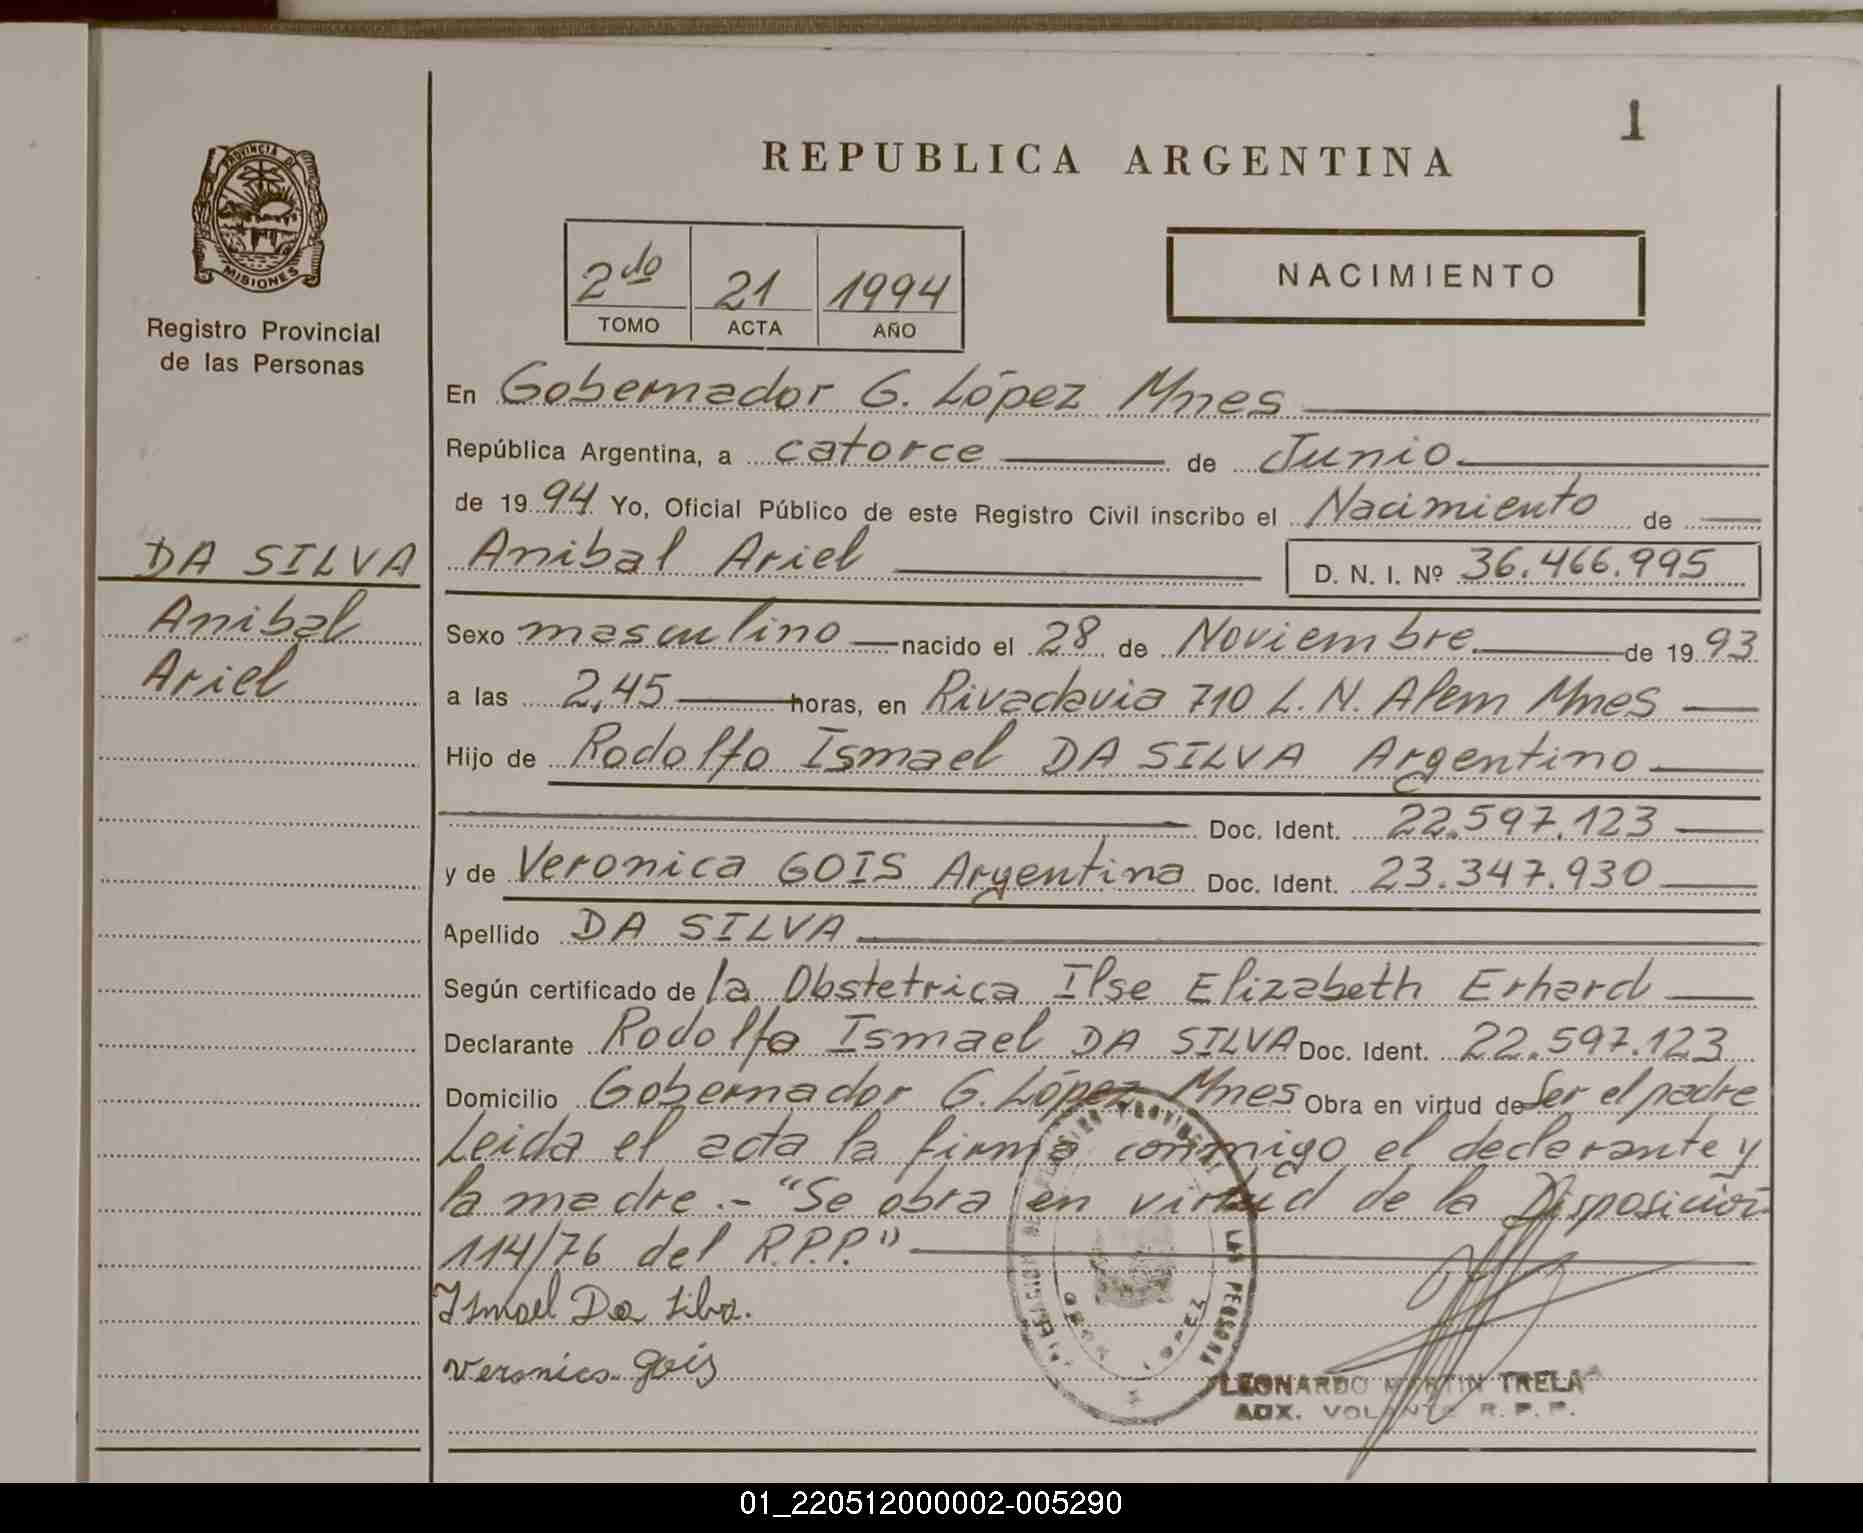 1
REPUBLICA ARGENTINA
PROVINCIA DE
MISIONES
Registro Provincial
de las Personas
2do 21 1994
TOMO ACTA AÑO
NACIMIENTO
En Gobernador G. López Mnes
República Argentina, a catorce de Junio
de 1994 Yo, Oficial Público de este Registro Civil inscribo el Nacimiento de
DA SILVA Anibal Ariel D. N. I. Nº 36.466.995
Anibal
Ariel
Sexo masculino nacido el 28 de Noviembre de 1993
a las 2,45 horas, en Rivadavia 710 L. N. Alem Mnes
Hijo de Rodolfo Ismael DA SILVA Argentino
Doc. Ident. 22.597.123
y de Veronica GOIS Argentina Doc. Ident. 23.347.930
Apellido DA SILVA
Según certificado de la Obstetrica Ilse Elizabeth Erhard
Declarante Rodolfo Ismael DA SILVA Doc. Ident. 22.597.123
Domicilio Gobernador G. López Mnes Obra en virtud de Ser el padre
Leida el acta la firma conmigo el declarante y
la madre.- "Se obra en virtud de la Disposición
114/76 del R.P.P."
Ismael Da Silva.
Veronica Gois
LEONARDO MARTIN TRELA
AUX. VOLANTE R. P. P.
01_220512000002-005290